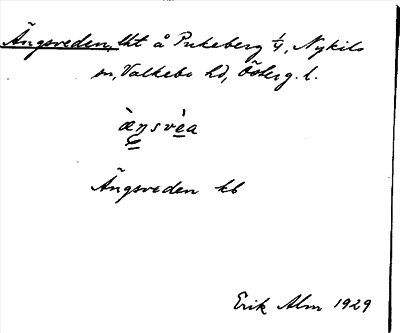 Ängsveden, lht å Pukeberg 1/4, Nykils
sn, Valkebo hd, Österg. l.
æ̀ŋsvèa
Ängsveden kb
Erik Alm 1929